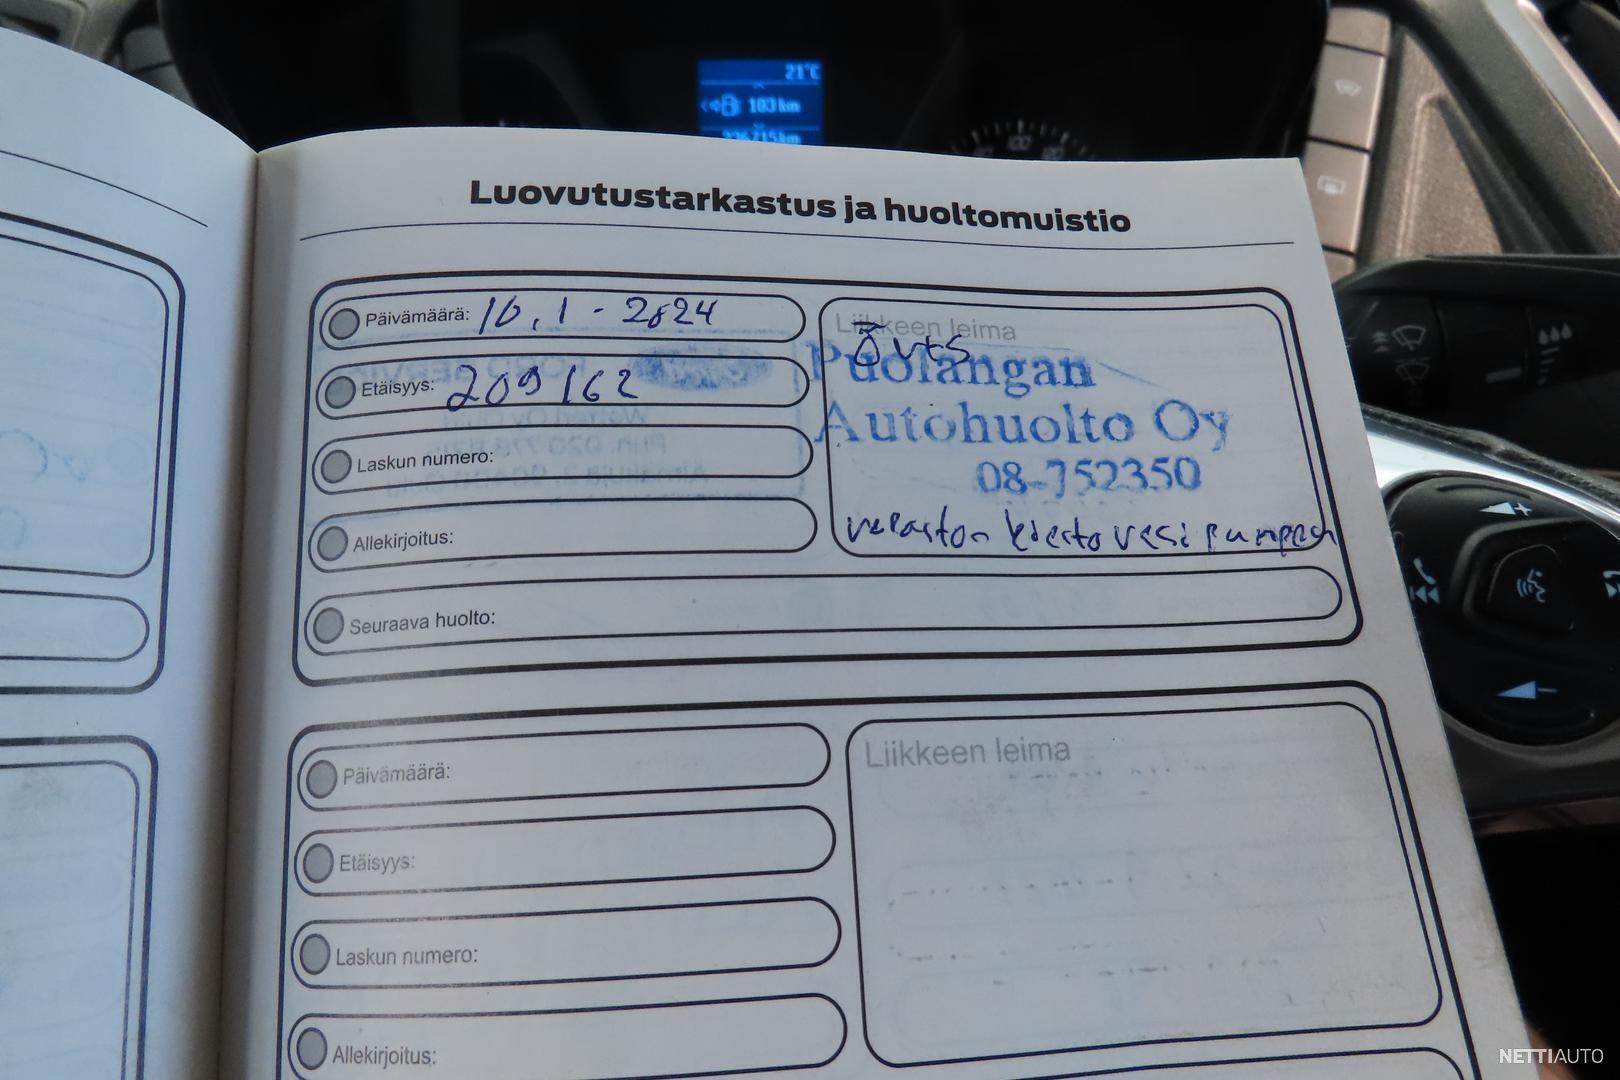 21°C
103 km
Luovutustarkastus ja huoltomuistio
Päivämäärä: 10.1-2024
Etäisyys: 209162
Laskun numero:
Allekirjoitus:
Seuraava huolto:
Liikkeen leima
Puolangan
Autohuolto Oy
08-752350
vesi
Päivämäärä:
Etäisyys:
Laskun numero:
Allekirjoitus:
Liikkeen leima
NETTIAUTO